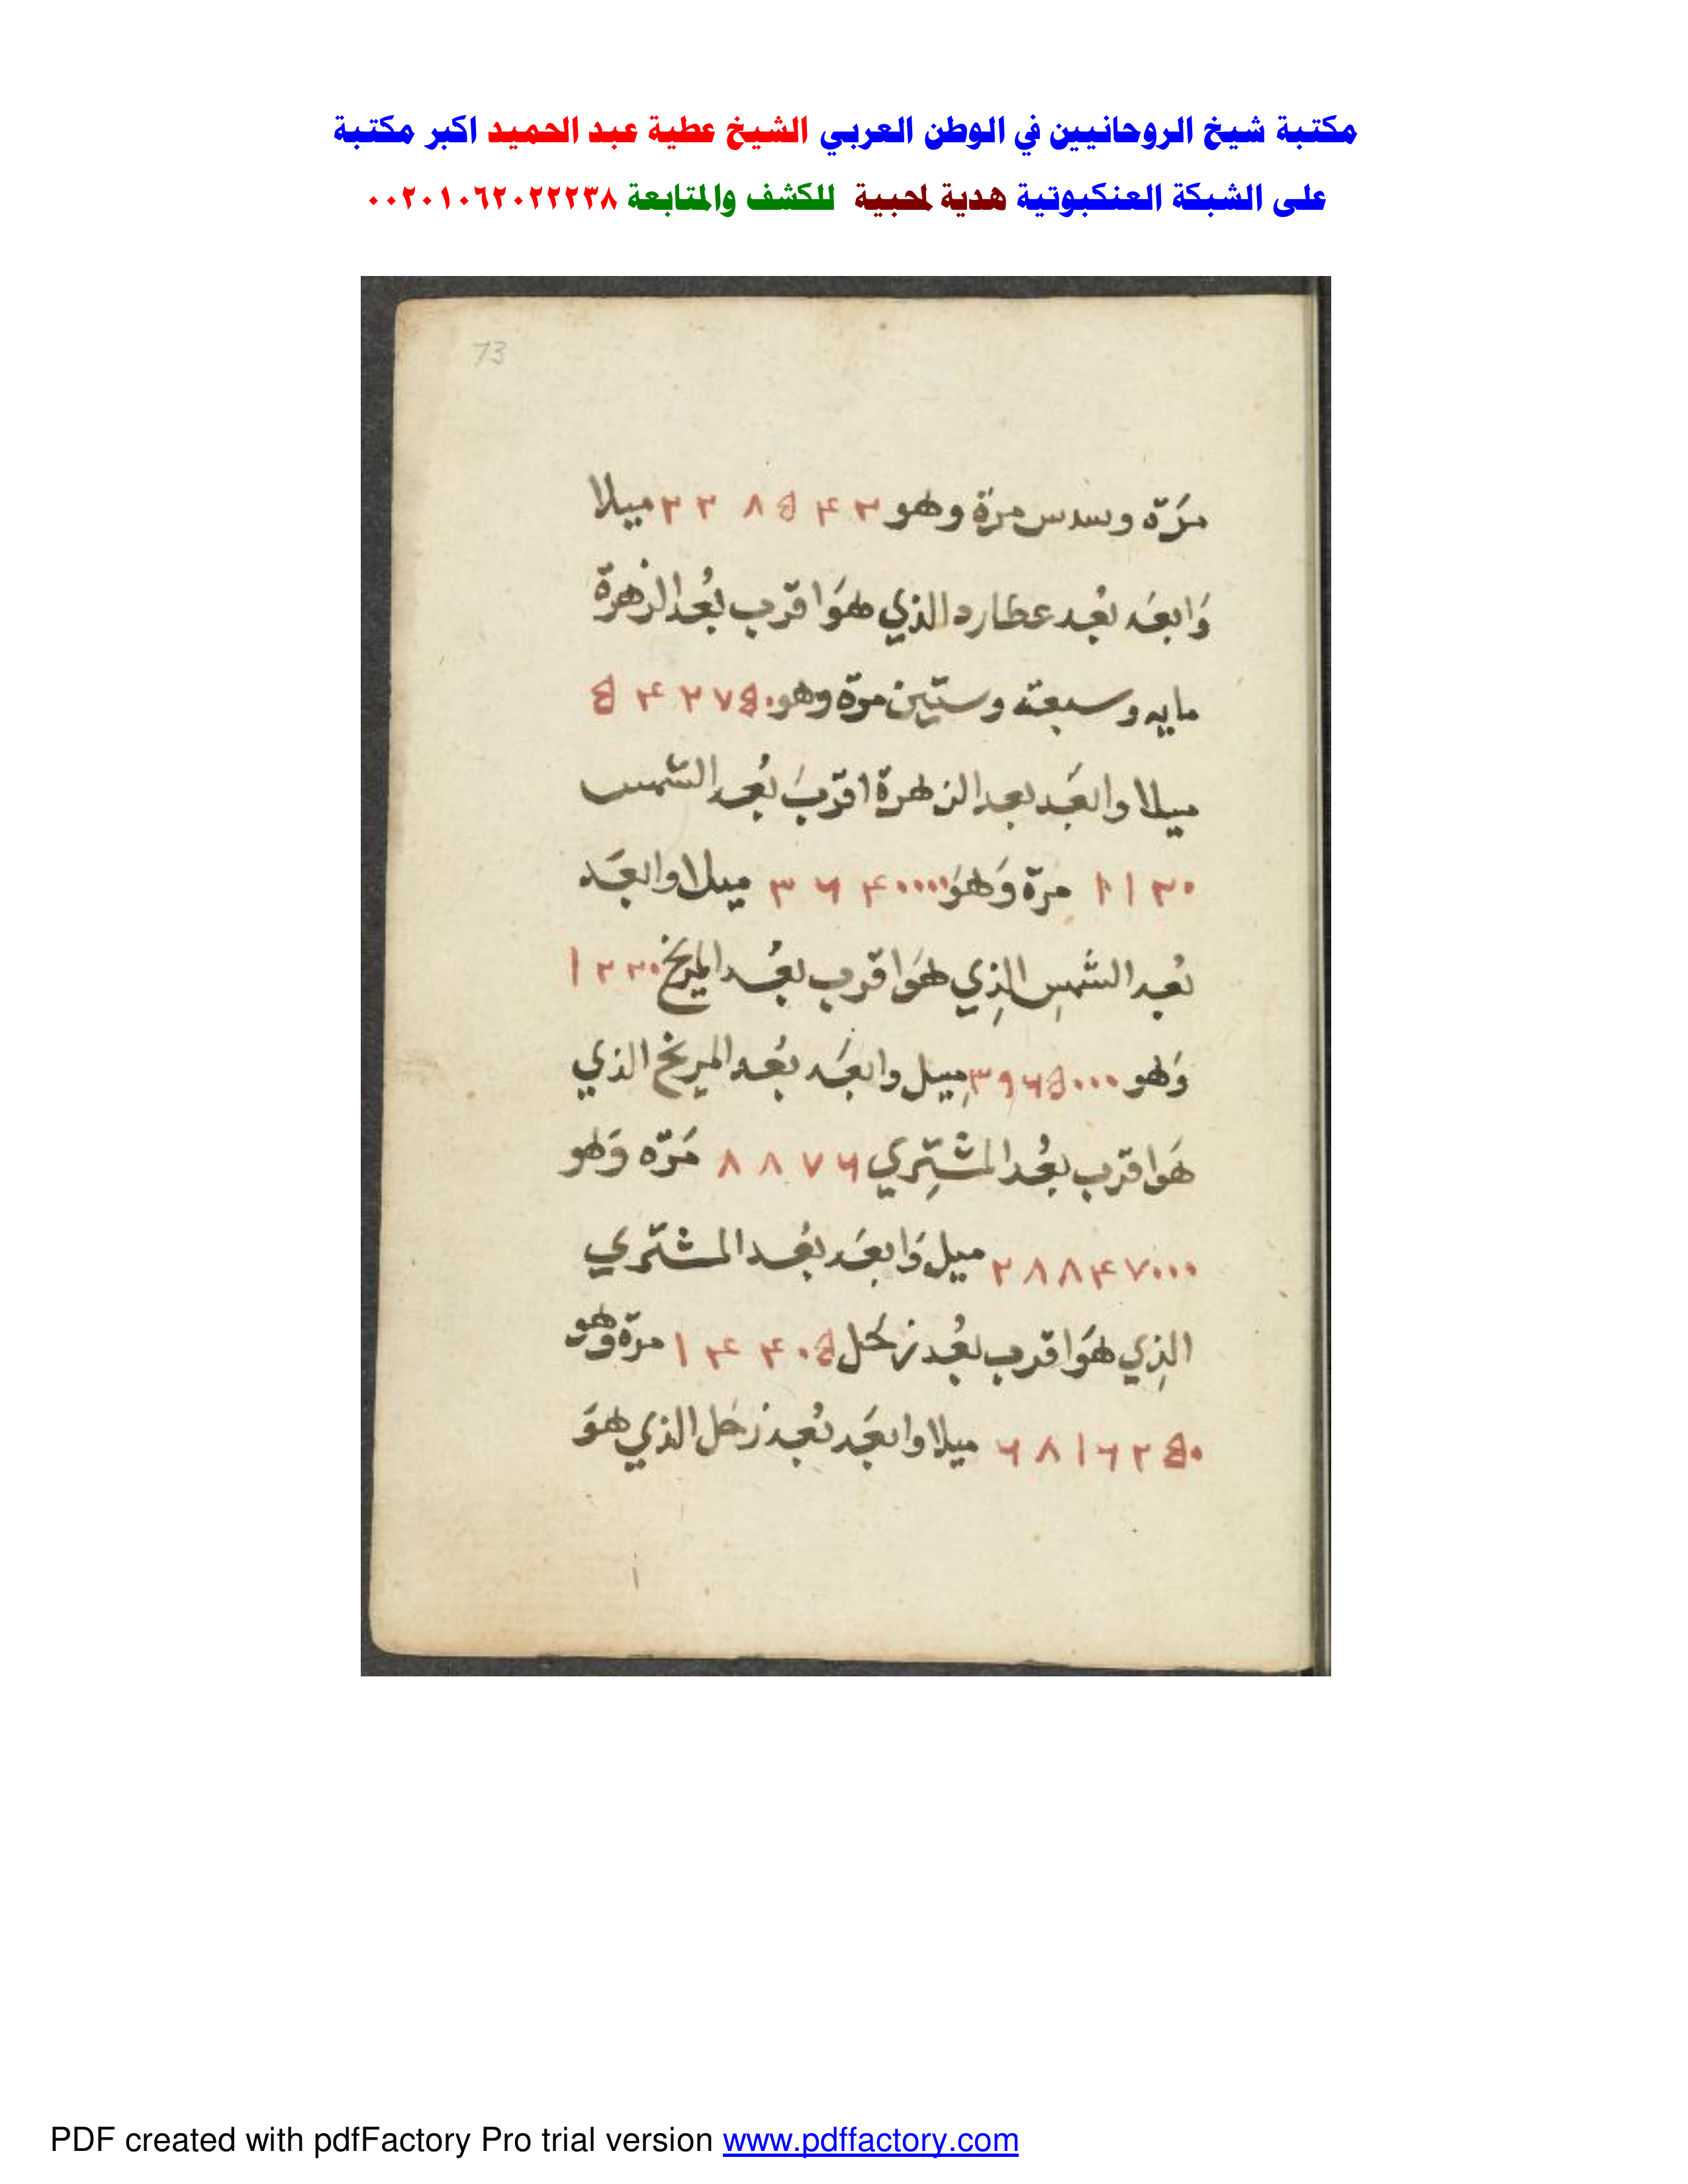 مكتبة شيخ الروحانيين في الوطن العربي الشيخ عطية عبد الحميد اكبر مكتبة
على الشبكة العنكبوتية هدية لمحبية للكشف والمتابعة ٠٠٢٠١٠٦٢٠٢٢٢٣٨
73
مرّة وسدس مرّة وهو ميلا
وَابعَد بُعد عطارد الذي هوَ اقرب بُعد الزهرة
مايه وسبعة وستين مرّة وهو ٥٤٢٧٥٠
ميلا وابعَد بعد الزهرة اقربَ بُعد الشمس
مرّة وَهوَ ٣٦٤٠٠٠٠ ميلا وابعَد
بُعد الشمسِ الذِي هوَ اقرب بعُد المريخ
وَهو ٣٩٦٥٠٠٠ ميل وابعَد بُعد المريخ الذي
هوَ اقرب بعُد المشتِري ٨٨٧٦ مَرّه وَهو
٢٨٨٤٧٠٠٠ ميل وَابعَد بُعد المشتري
الذِي هوَ اقرب بعُد زحل ١٤٤٠٥ مرّة وَهو
٦٨١٦٢٥٠ ميلا وابعَد بُعد زحل الذي هوَ
PDF created with pdfFactory Pro trial version www.pdffactory.com